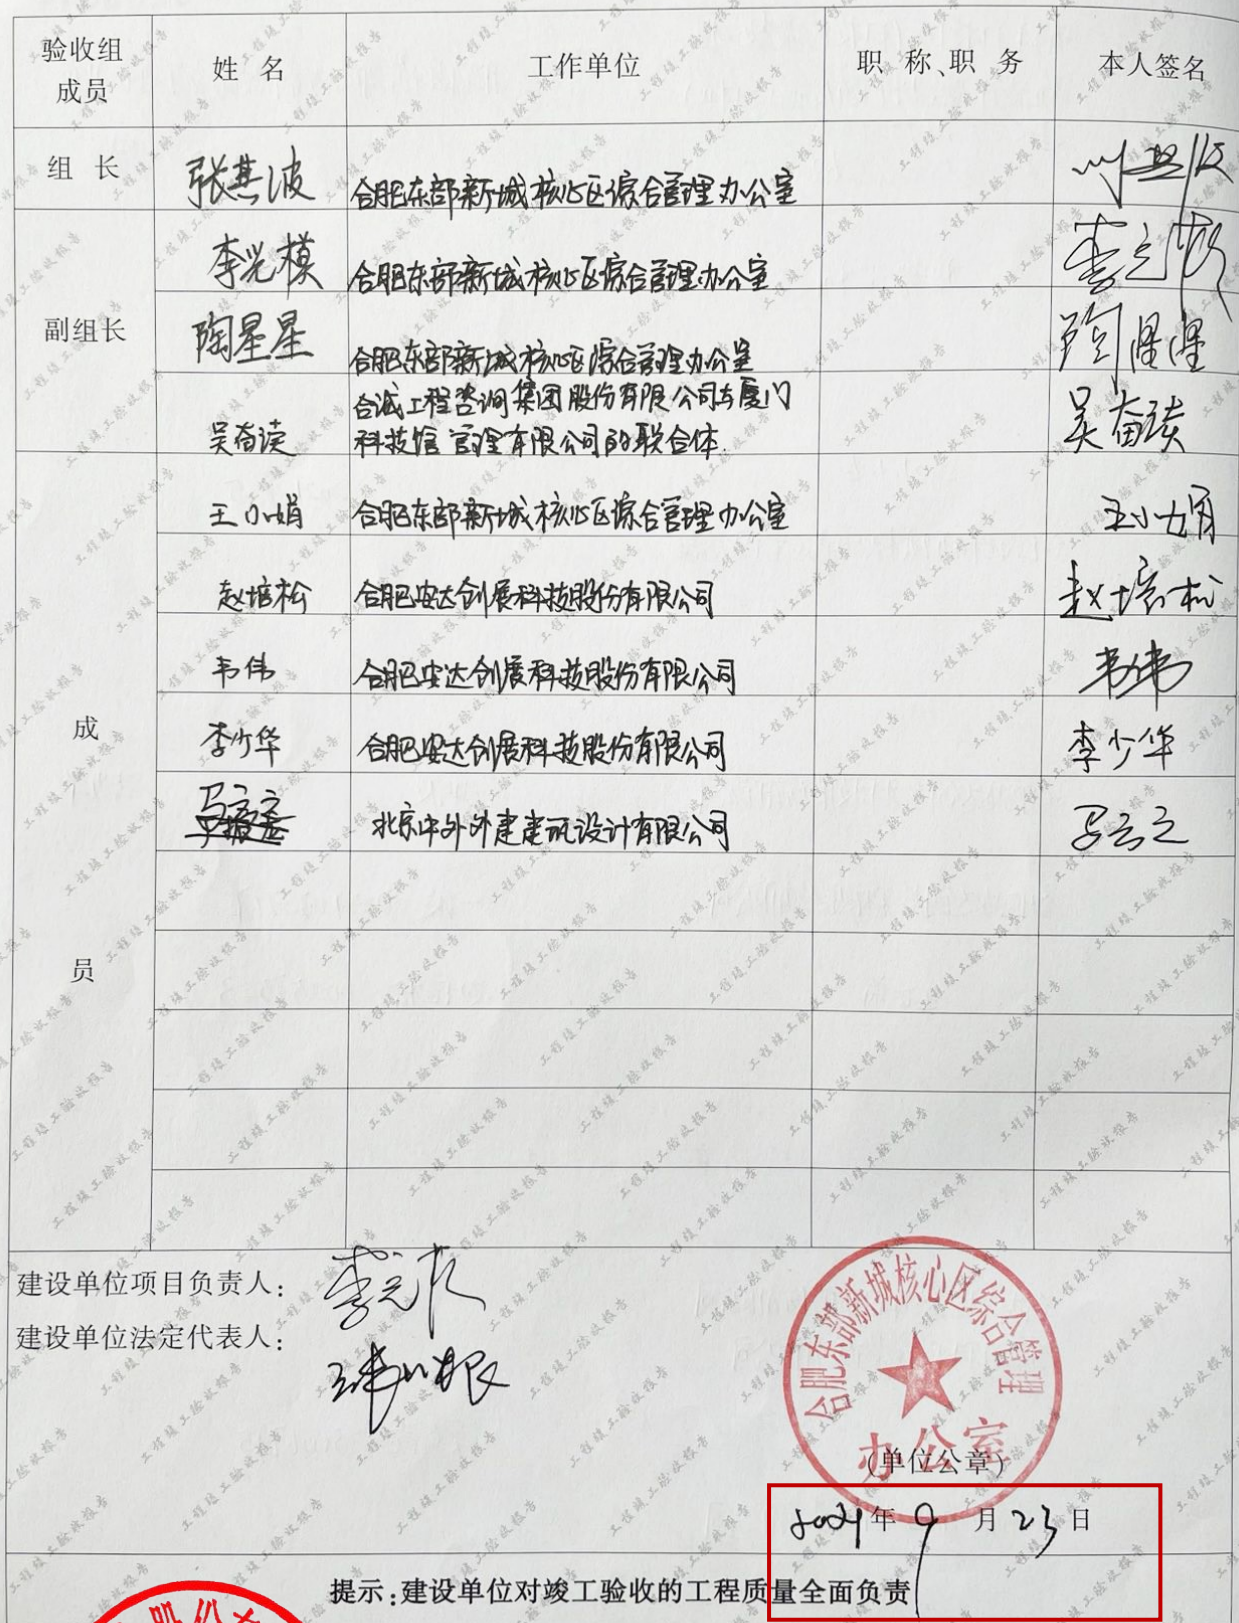 验收组成员 姓 名 工作单位 职 称、职 务 本人签名
组 长 张其波 合肥东部新城核心区综合管理办公室
副组长 李光模 合肥东部新城核心区综合管理办公室
陶星星 合肥东部新城核心区综合管理办公室 陶星星
合诚工程咨询集团股份有限公司与厦门
吴奋读 科技馆管理有限公司的联合体. 吴奋读
成员
王小娟 合肥东部新城核心区综合管理办公室 王小娟
赵培松 合肥安达创展科技股份有限公司 赵培松
韦伟 合肥安达创展科技股份有限公司 韦伟
李少华 合肥安达创展科技股份有限公司 李少华
北京中外建建筑设计有限公司
建设单位项目负责人:
建设单位法定代表人:
合肥东部新城核心区综合管理
办公室
(单位公章)
年 9 月 23 日
提示:建设单位对竣工验收的工程质量全面负责
股份有
工程竣工验收报告